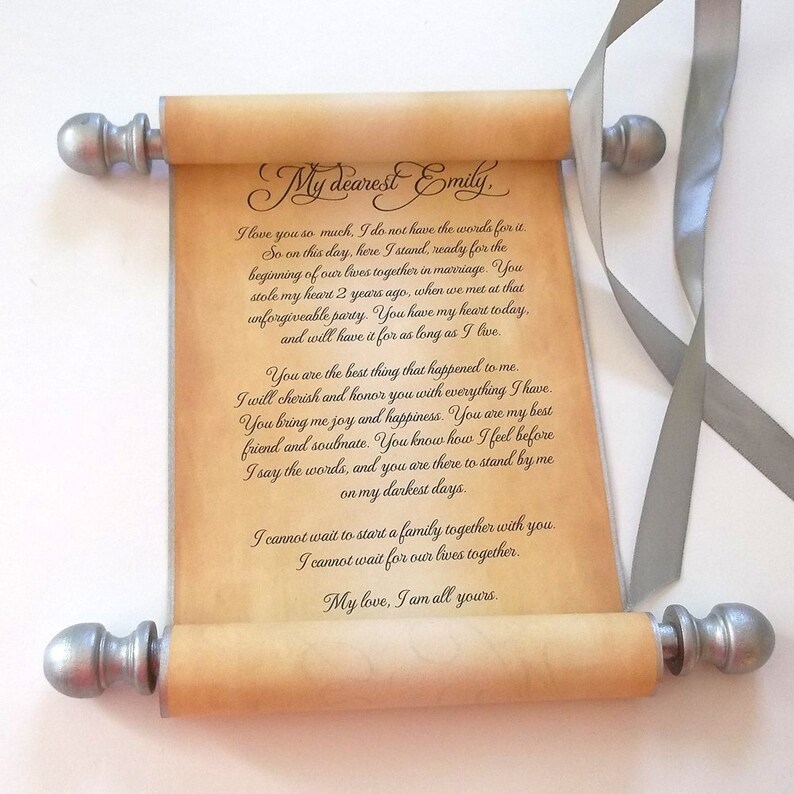 My dearest Emily,
I love you so much, I do not have the words for it.
So on this day, here I stand, ready for the
beginning of our lives together in marriage. You
stole my heart 2 years ago, when we met at that
unforgiveable party. You have my heart today,
and will have it for as long as I live.
You are the best thing that happened to me.
I will cherish and honor you with everything I have.
You bring me joy and happiness. You are my best
friend and soulmate. You know how I feel before
I say the words, and you are there to stand by me
on my darkest days.
I cannot wait to start a family together with you.
I cannot wait for our lives together.
My love, I am all yours.